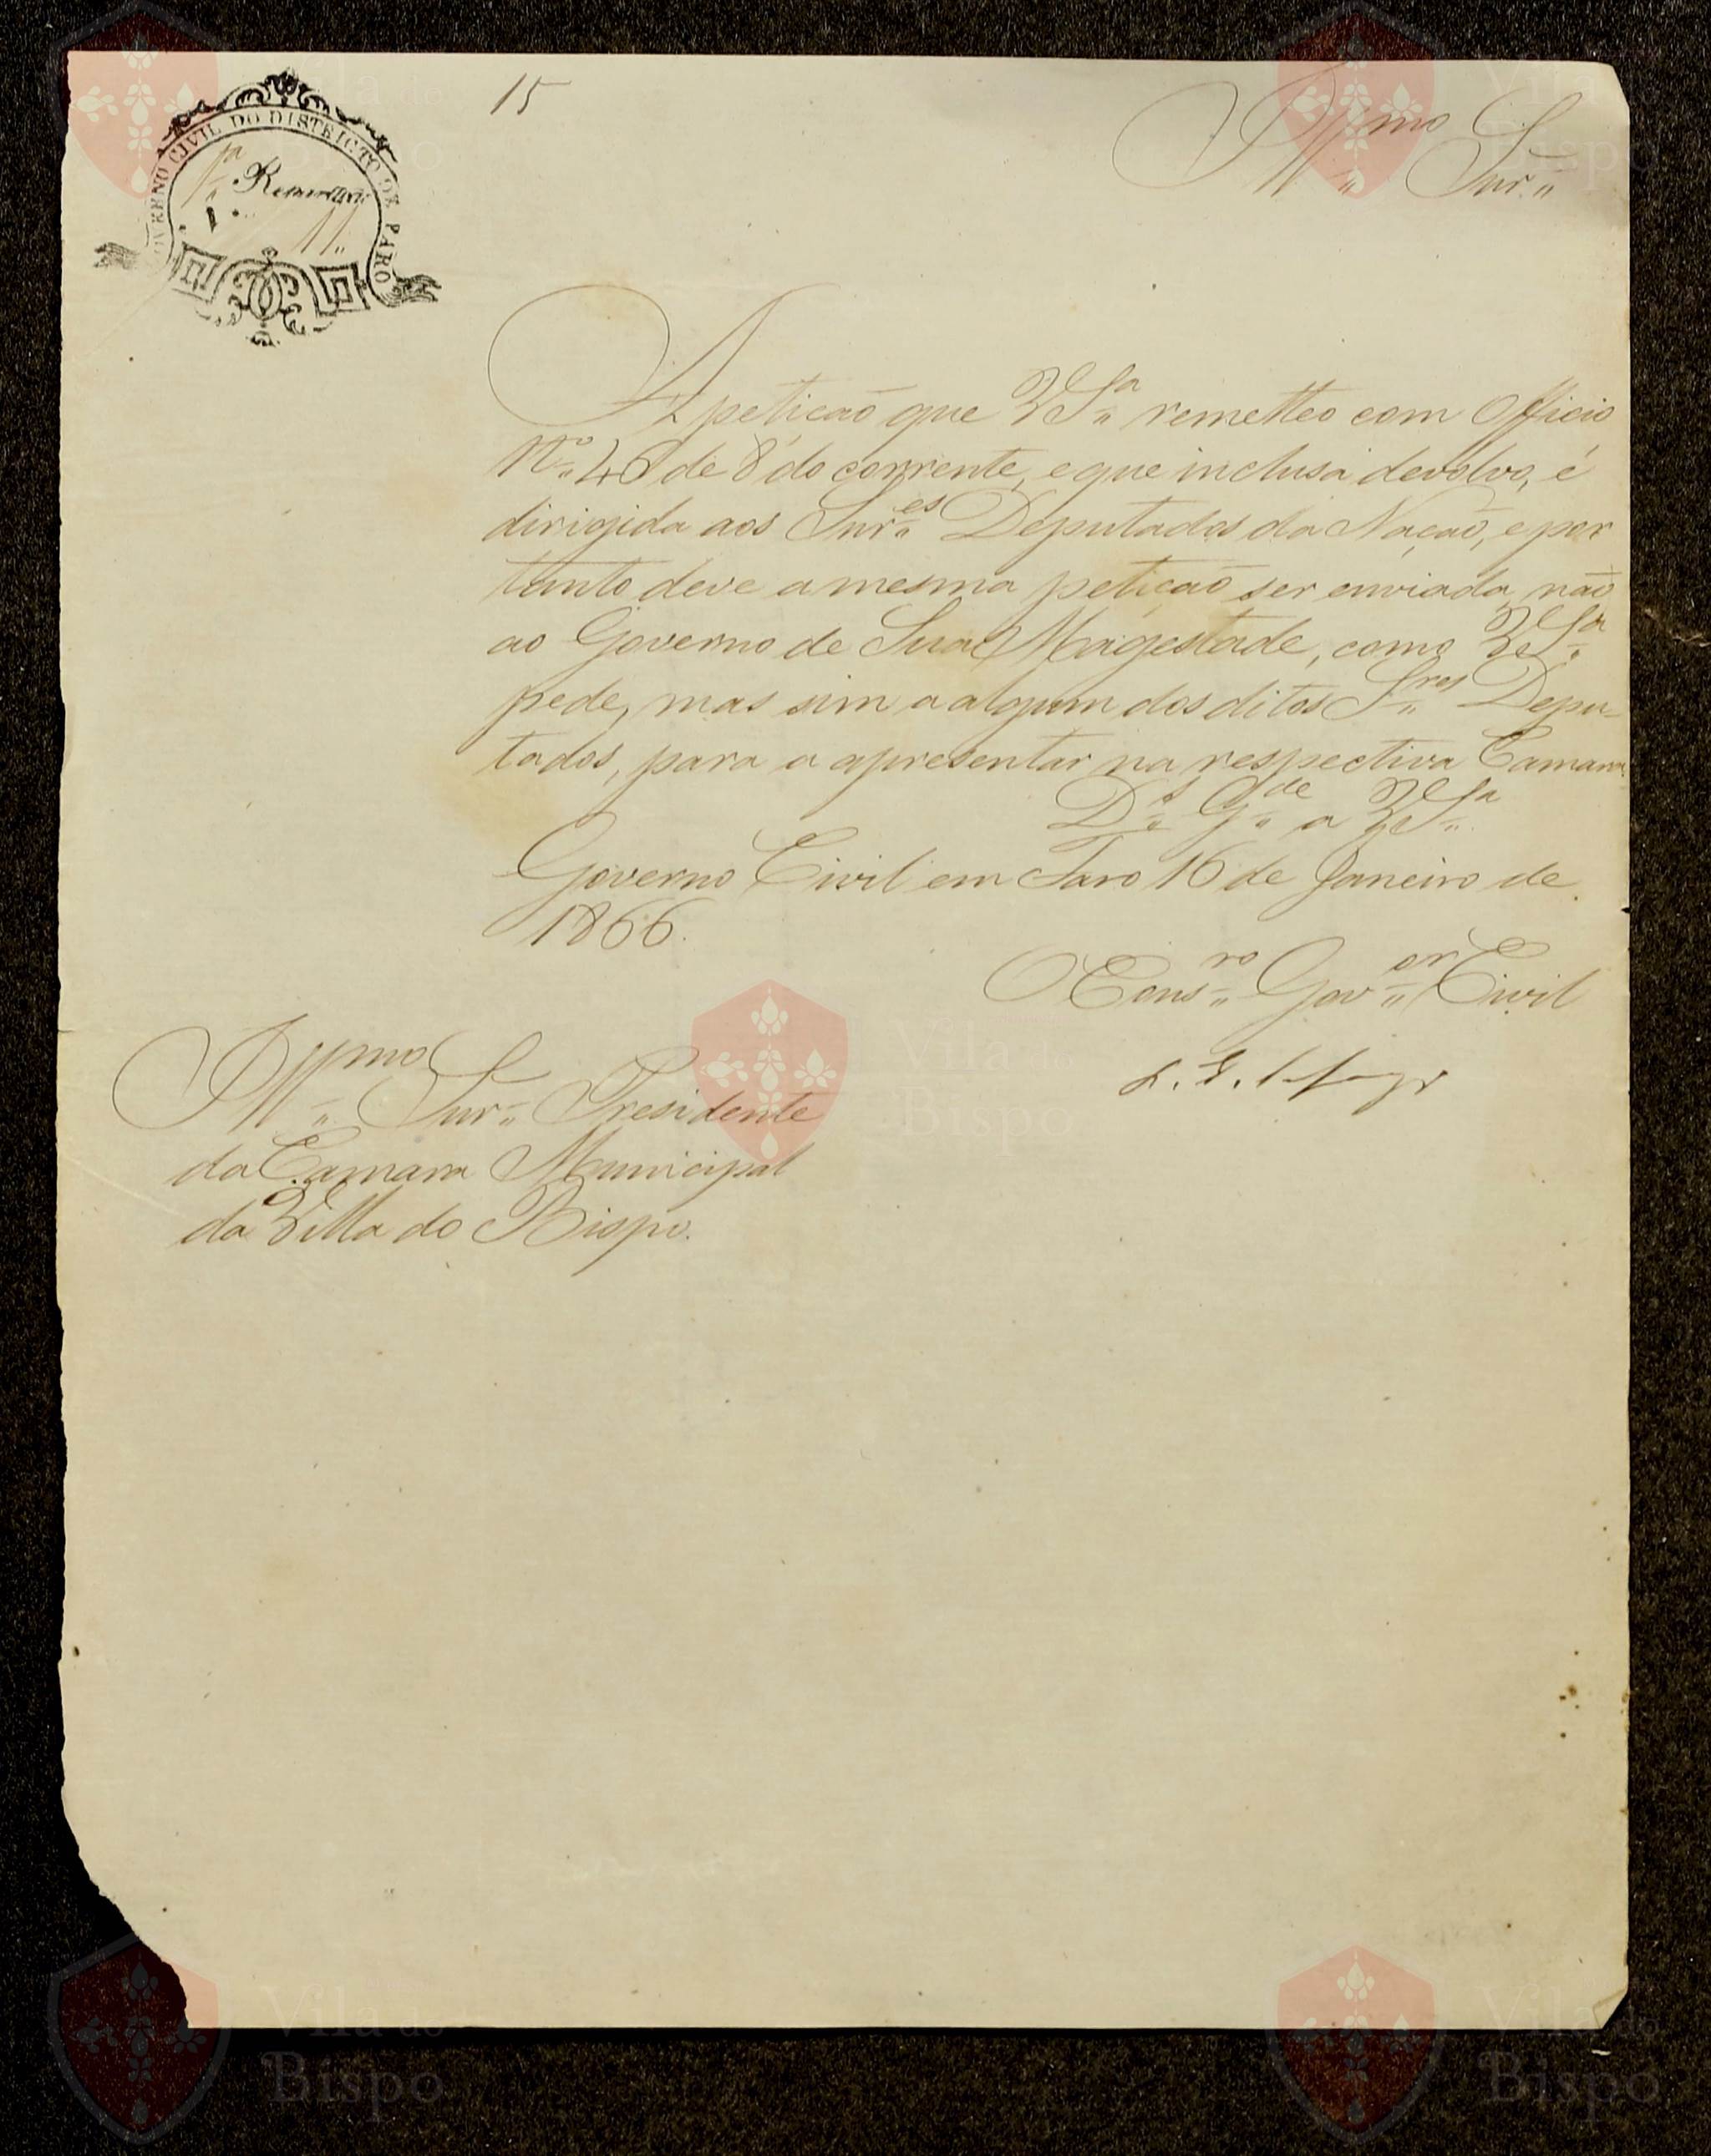 15
GOVERNO CIVIL DO DISTRICTO DE FARO
1ª Repartição
1ª
N.
Illmo Snr.
A petição que VSª remetteo com Officio
Nº 46 de 8 do corrente, e que inclusa devolvo, é
dirigida aos Snres Deputados da Nação, e por
tanto deve a mesma petição ser enviada, não
ao Governo de Sua Magestade, como VSª
pede, mas sim a algum dos ditos Sres Depu-
tados, para a apresentar na respectiva Camara.
Ds Gde a VSª
Governo Civil em Faro 16 de Janeiro de
1866.
O Consro Govor Civil
Illmo Snr. Presidente
da Camara Municipal
da Villa do Bispo.
Vila do
Bispo